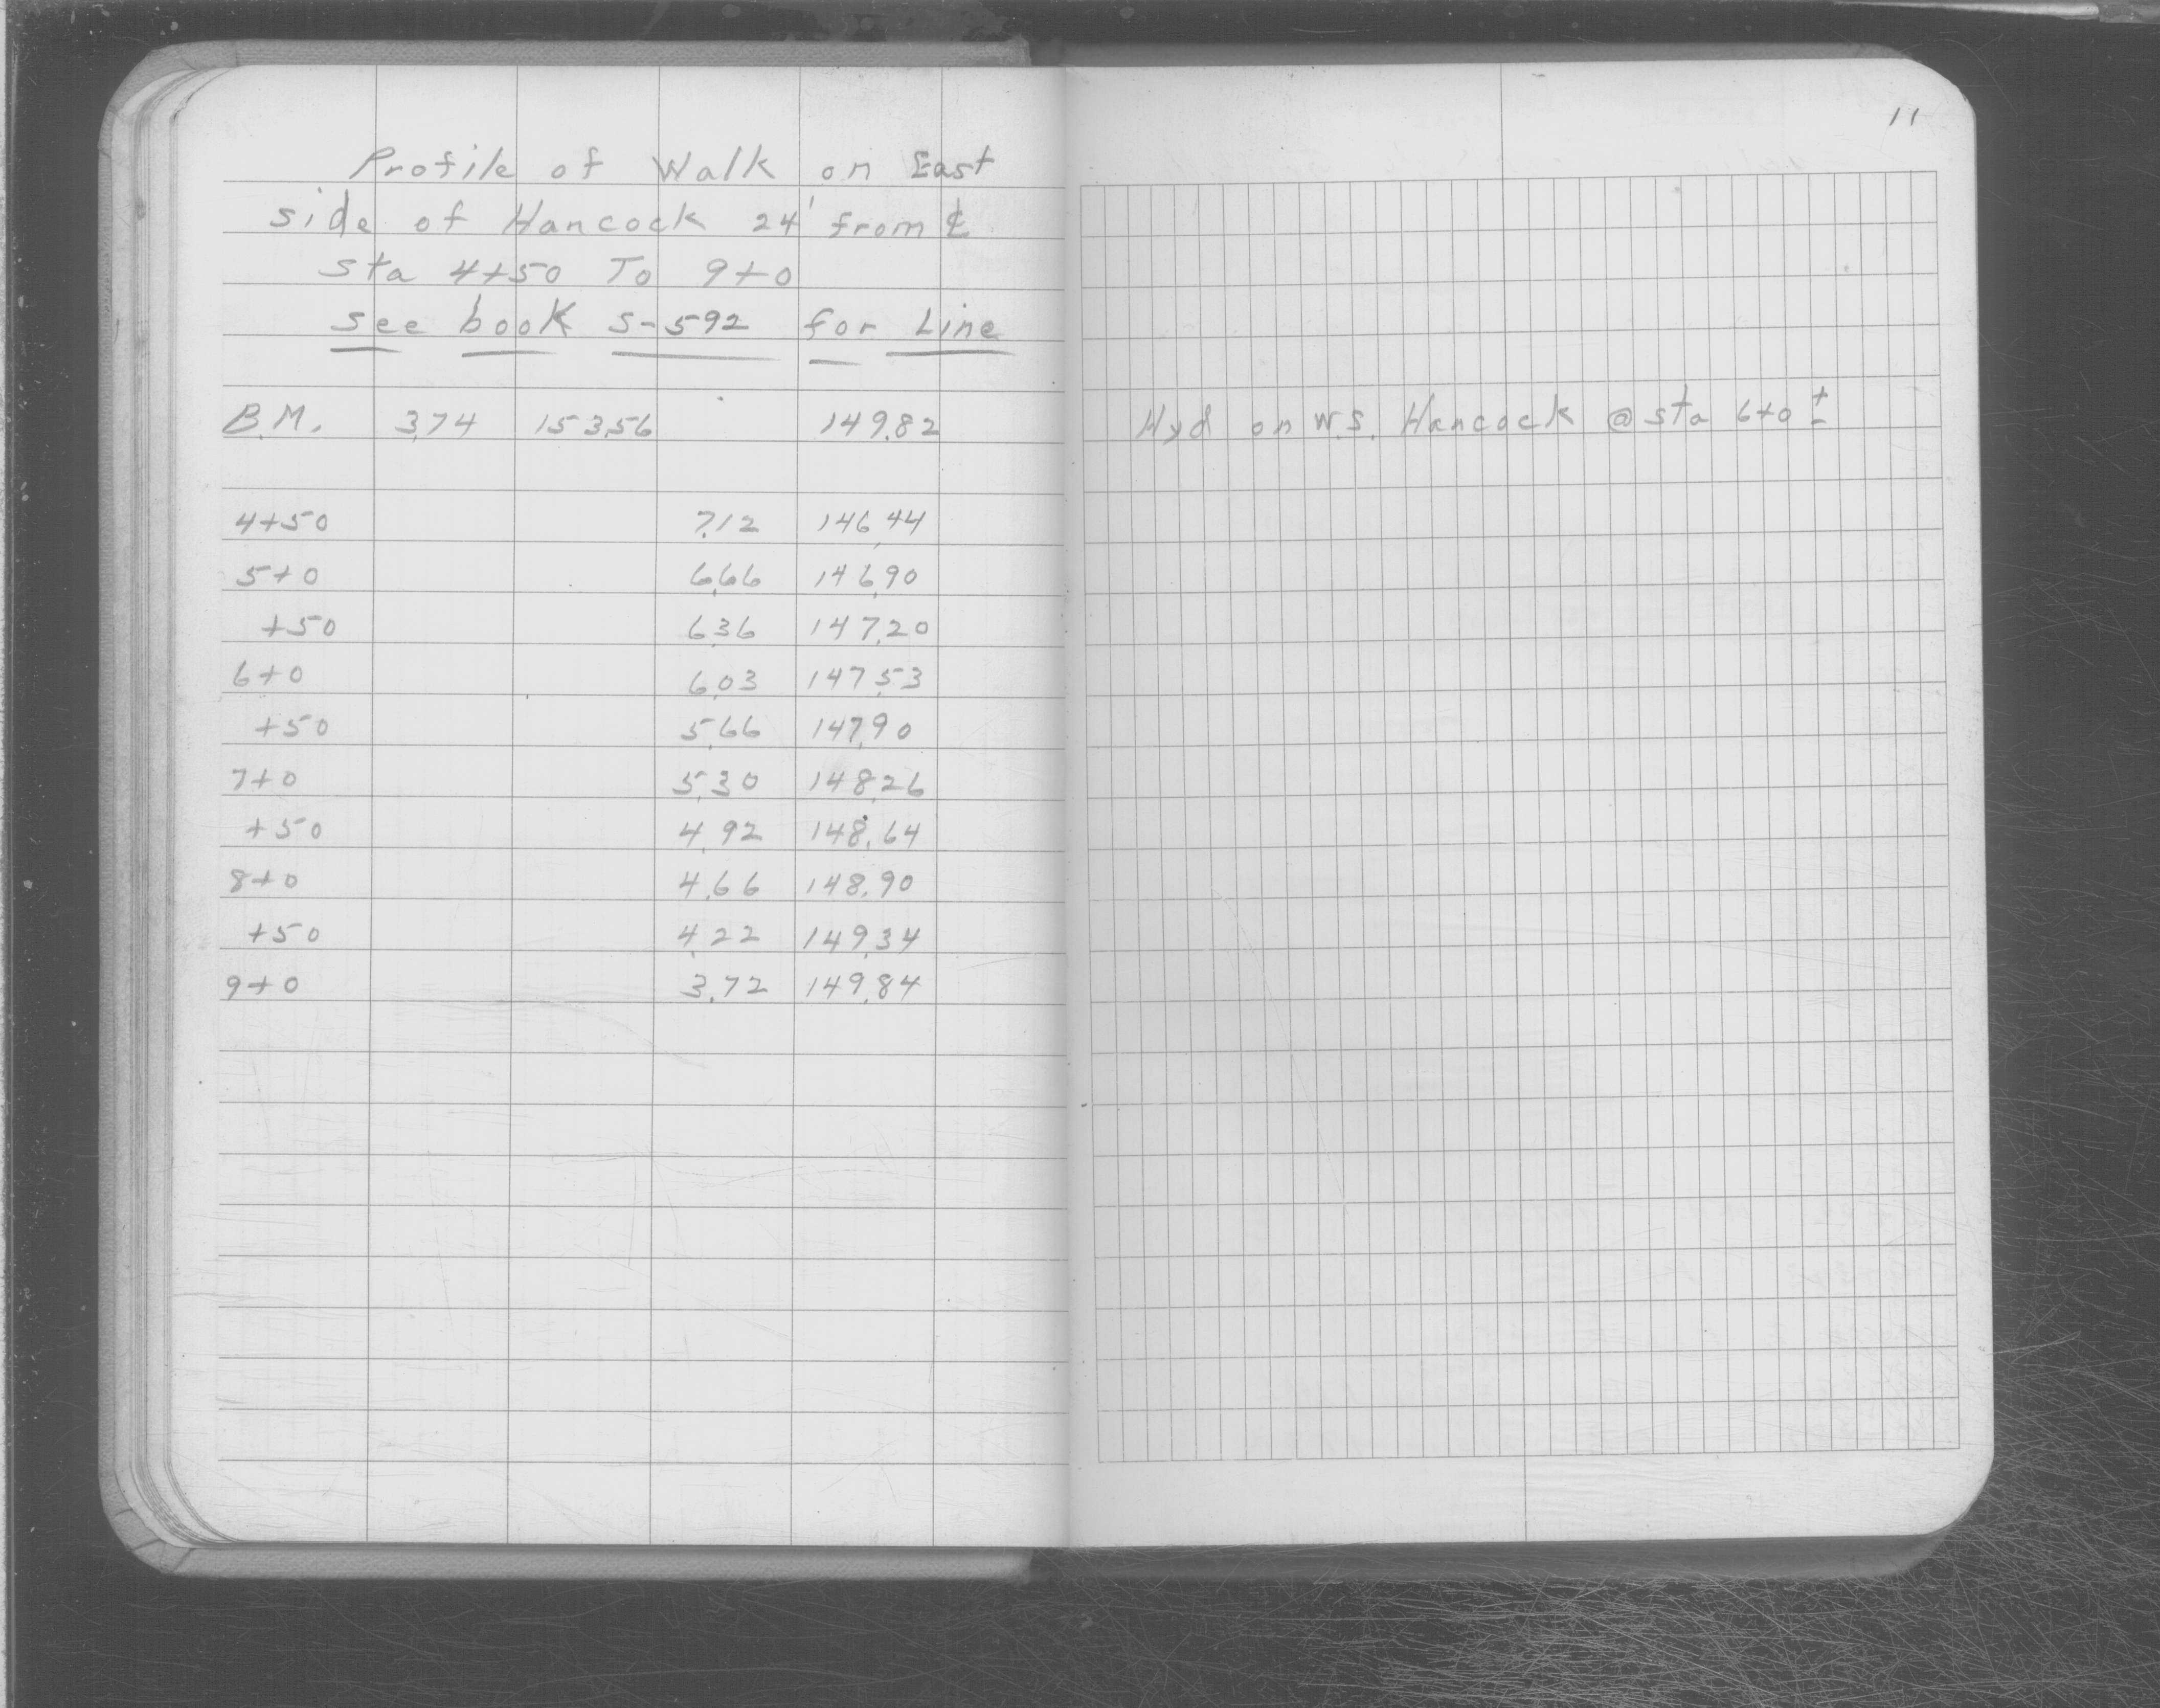 Profile of Walk on East
side of Hancock 24' from ℄
sta 4+50 To 9+0
see book S-592 for Line
B.M. 3.74 153.56 149.82
4+50 7.12 146.44
5+0 6.66 146.90
+50 6.36 147.20
6+0 6.03 147.53
+50 5.66 147.90
7+0 5.30 148.26
+50 4.92 148.64
8+0 4.66 148.90
+50 4.22 149.34
9+0 3.72 149.84
11
Hyd on W.S. Hancock @ sta 6+0 ±